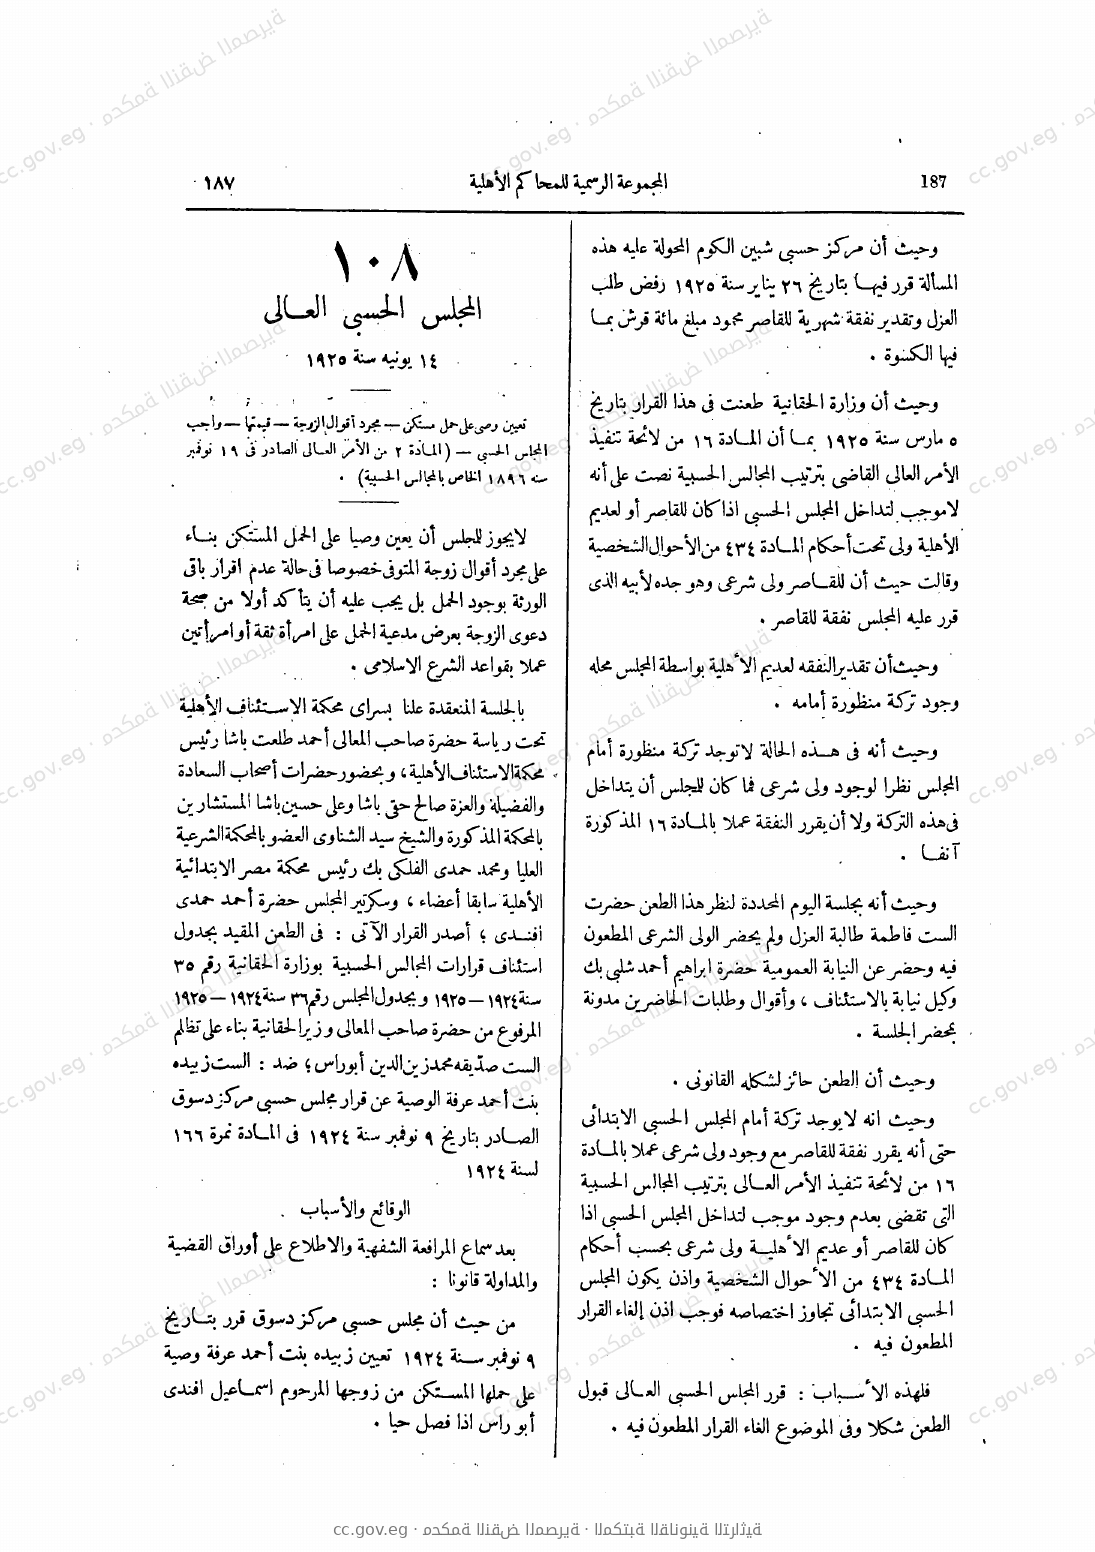 187 المجموعة الرسمية للمحاكم الأهلية ١٨٧
وحيث أن مركز حسبى شبين الكوم المحولة عليه هذه
المسألة قرر فيها بتاريخ ٢٦ يناير سنة ١٩٢٥ رفض طلب
العزل وتقدير نفقة شهرية للقاصر محمود مبلغ مائة قرش بما
فيها الكسوة .
وحيث أن وزارة الحقانية طعنت فى هذا القرار بتاريخ
٥ مارس سنة ١٩٢٥ بما أن المادة ١٦ من لائحة تنفيذ
الأمر العالى القاضى بترتيب المجالس الحسبية نصت على أنه
لاموجب لتداخل المجلس الحسبى اذا كان للقاصر أو لعديم
الأهلية ولى تحت أحكام المادة ٤٣٤ من الأحوال الشخصية
وقالت حيث أن للقاصر ولى شرعى وهو جده لأبيه الذى
قرر عليه المجلس نفقة للقاصر .
وحيث أن تقدير النفقه لعديم الأهلية بواسطة المجلس محله
وجود تركة منظورة أمامه .
وحيث أنه فى هذه الحالة لاتوجد تركة منظورة أمام
المجلس نظرا لوجود ولى شرعى فما كان للمجلس أن يتداخل
فى هذه التركة ولا أن يقرر النفقة عملا بالمادة ١٦ المذكورة
آنفا .
وحيث أنه بجلسة اليوم المحددة لنظر هذا الطعن حضرت
الست فاطمة طالبة العزل ولم يحضر الولى الشرعى المطعون
فيه وحضر عن النيابة العمومية حضرة ابراهيم أحمد شلبى بك
وكيل نيابة بالاستئناف ، وأقوال وطلبات الحاضرين مدونة
بمحضر الجلسة .
وحيث أن الطعن حائز لشكله القانونى .
وحيث انه لا يوجد تركة أمام المجلس الحسبى الابتدائى
حتى أنه يقرر نفقة للقاصر مع وجود ولى شرعى عملا بالمادة
١٦ من لائحة تنفيذ الأمر العالى بترتيب المجالس الحسبية
التى تقضى بعدم وجود موجب لتداخل المجلس الحسبى اذا
كان للقاصر أو عديم الأهلية ولى شرعى بحسب أحكام
المادة ٤٣٤ من الأحوال الشخصية واذن يكون المجلس
الحسبى الابتدائى تجاوز اختصاصه فوجب اذن إلغاء القرار
المطعون فيه .
فلهذه الأسباب : قرر المجلس الحسبى العالى قبول
الطعن شكلا وفى الموضوع الغاء القرار المطعون فيه .
١٠٨
المجلس الحسبى العالى
١٤ يونيه سنة ١٩٢٥
تعيين وصى على حمل مستكن — مجرد أقوال الزوجة — قيمتها — واجب
المجلس الحسبى — (المادة ٢ من الأمر العالى الصادر فى ١٩ نوفمبر
سنه ١٨٩٦ الخاص بالمجالس الحسبية) .
لايجوز للمجلس أن يعين وصيا على الحمل المستكن بناء
على مجرد أقوال زوجة المتوفى خصوصا فى حالة عدم اقرار باقى
الورثة بوجود الحمل بل يجب عليه أن يتأكد أولا من صحة
دعوى الزوجة بعرض مدعية الحمل على امرأة ثقة أو امرأتين
عملا بقواعد الشرع الاسلامى .
بالجلسة المنعقدة علنا بسراى محكمة الاستئناف الأهلية
تحت رياسة حضرة صاحب المعالى أحمد طلعت باشا رئيس
محكمة الاستئناف الأهلية ، وبحضور حضرات أصحاب السعادة
والفضيلة والعزة صالح حقى باشا وعلى حسين باشا المستشارين
بالمحكمة المذكورة والشيخ سيد الشناوى العضو بالمحكمة الشرعية
العليا ومحمد حمدى الفلكى بك رئيس محكمة مصر الابتدائية
الأهلية سابقا أعضاء ، وسكرتير المجلس حضرة أحمد حمدى
افندى ؛ أصدر القرار الآتى : فى الطعن المقيد بجدول
استئناف قرارات المجالس الحسبية بوزارة الحقانية رقم ٣٥
سنة ١٩٢٤ — ١٩٢٥ وبجدول المجلس رقم ٣٦ سنة ١٩٢٤ — ١٩٢٥
المرفوع من حضرة صاحب المعالى وزير الحقانية بناء على تظلم
الست صديقه محمد زين الدين أبوراس ؛ ضد : الست زبيده
بنت أحمد عرفة الوصية عن قرار مجلس حسبى مركز دسوق
الصادر بتاريخ ٩ نوفمبر سنة ١٩٢٤ فى المادة نمرة ١٦٦
لسنة ١٩٢٤
الوقائع والأسباب .
بعد سماع المرافعة الشفهية والاطلاع على أوراق القضية
والمداولة قانونا :
من حيث أن مجلس حسبى مركز دسوق قرر بتاريخ
٩ نوفمبر سنة ١٩٢٤ تعيين زبيده بنت أحمد عرفة وصية
على حملها المستكن من زوجها المرحوم اسماعيل افندى
أبو راس اذا فصل حيا .
cc.gov.eg · محكمة النقض المصرية · المكتبة القانونية التراثية